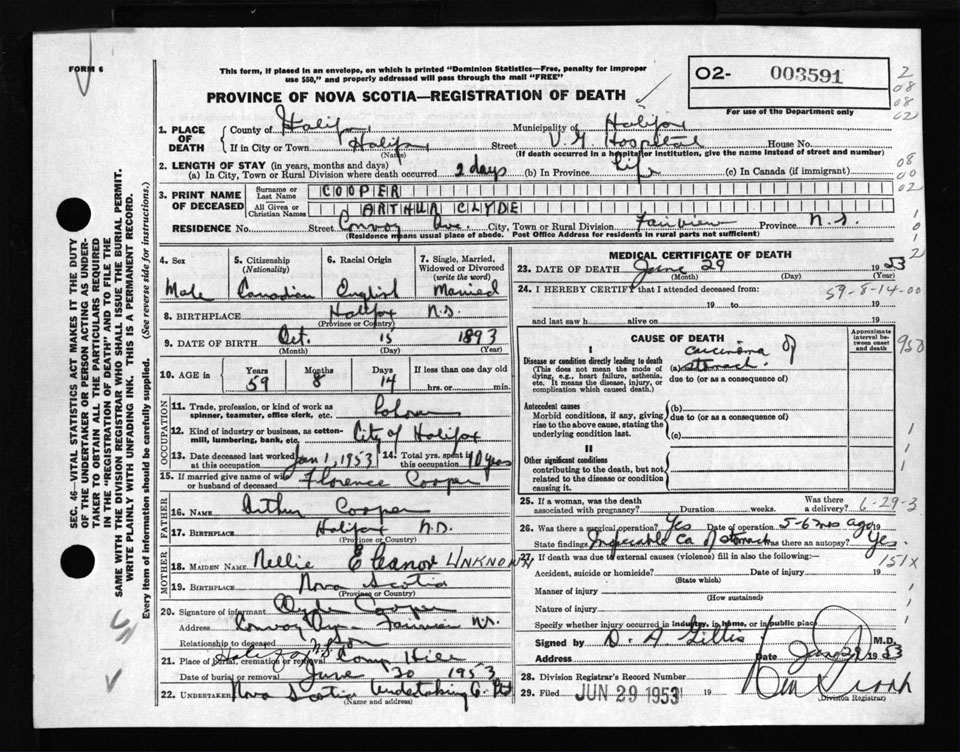 FORM 6
This form, if placed in an envelope, on which is printed "Dominion Statistics—Free, penalty for improper
use $50," and properly addressed will pass through the mail "FREE"
O2- 003591
For use of the Department only
PROVINCE OF NOVA SCOTIA—REGISTRATION OF DEATH
2
08
08
02
08
00
02
1. PLACE OF DEATH
County of Halifax Municipality of Halifax
If in City or Town Halifax Street V. G. Hospital House No.
(Name) (If death occurred in a hospital or institution, give the name instead of street and number)
2. LENGTH OF STAY (in years, months and days)
(a) In City, Town or Rural Division where death occurred 2 days (b) In Province Life (c) In Canada (if immigrant)
3. PRINT NAME OF DECEASED
Surname or Last Name COOPER
All Given or Christian Names ARTHUR CLYDE
RESIDENCE No. Street Convoy Ave. City, Town or Rural Division Fairview Province N.S.
(Residence means usual place of abode. Post Office Address for residents in rural parts not sufficient)
SEC. 46—VITAL STATISTICS ACT MAKES IT THE DUTY
OF THE UNDERTAKER OR PERSON ACTING AS UNDER-
TAKER TO OBTAIN ALL THE PARTICULARS REQUIRED
IN THE "REGISTRATION OF DEATH" AND TO FILE THE
SAME WITH THE DIVISION REGISTRAR WHO SHALL ISSUE THE BURIAL PERMIT.
WRITE PLAINLY WITH UNFADING INK. THIS IS A PERMANENT RECORD.
Every item of information should be carefully supplied. (See reverse side for instructions.)
4. Sex Male
5. Citizenship (Nationality) Canadian
6. Racial Origin English
7. Single, Married, Widowed or Divorced (write the word) Married
8. BIRTHPLACE Halifax N.S.
(Province or Country)
9. DATE OF BIRTH Oct. 15 1893
(Month) (Day) (Year)
10. AGE in Years 59 Months 8 Days 14 If less than one day old hrs. or min.
OCCUPATION
11. Trade, profession, or kind of work as
spinner, teamster, office clerk, etc.
12. Kind of industry or business, as cotton-
mill, lumbering, bank, etc. City of Halifax
13. Date deceased last worked at this occupation Jan 1, 1953
14. Total yrs. spent in this occupation 10 yrs
15. If married give name of wife
or husband of deceased Florence Cooper
FATHER
16. NAME Arthur Cooper
17. BIRTHPLACE Halifax N.S.
(Province or Country)
MOTHER
18. MAIDEN NAME Nellie Eleanor UNKNOWN
19. BIRTHPLACE Nova Scotia
(Province or Country)
20. Signature of informant Clyde Cooper
Address Convoy Ave Fairview N.S.
Relationship to deceased Son
21. Place of burial, cremation or removal Halifax N.S. Camp Hill
Date of burial or removal June 30 1953
22. Undertaker Nova Scotia Undertaking Co.
(Name and address)
MEDICAL CERTIFICATE OF DEATH
23. DATE OF DEATH June 29 1953
(Month) (Day) (Year)
24. I HEREBY CERTIFY that I attended deceased from:
59-8-14-00
19 to 19
and last saw h alive on 19
CAUSE OF DEATH
Approximate interval between onset and death
950
I
Disease or condition directly leading to death
(This does not mean the mode of
dying, e.g., heart failure, asthenia,
etc. It means the disease, injury, or
complication which caused death.)
(a) carcinoma of stomach
due to (or as a consequence of)
Antecedent causes
Morbid conditions, if any, giving
rise to the above cause, stating the
underlying condition last.
(b)
due to (or as a consequence of)
(c)
II
Other significant conditions
contributing to the death, but not
related to the disease or condition
causing it.
25. If a woman, was the death
associated with pregnancy? Duration weeks. Was there a delivery?
6-29-3
26. Was there a surgical operation? Yes Date of operation 5-6 mos ago 19
State findings Inoperable Ca of stomach Was there an autopsy? Yes.
27. If death was due to external causes (violence) fill in also the following:
151X
Accident, suicide or homicide? Date of injury 19
(State which)
Manner of injury
(How sustained)
Nature of injury
Specify whether injury occurred in industry, in home, or in public place
Signed by D. A. Gillis M.D.
Address Date June 29 1953
28. Division Registrar's Record Number
29. Filed JUN 29 1953 19
(Division Registrar)